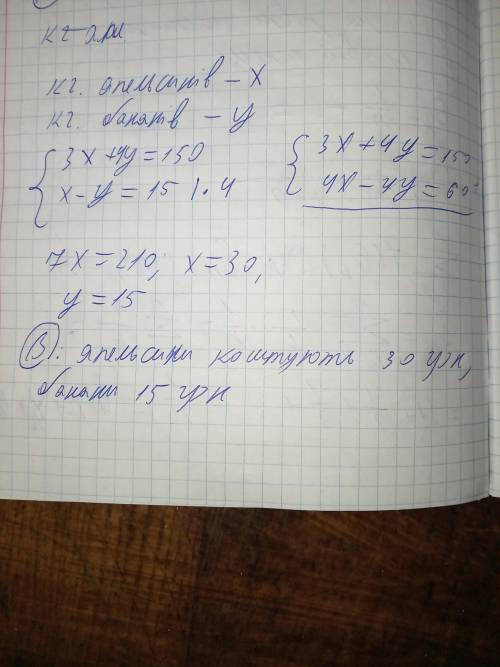 кг. апельсинів – х
кг. бананів – у
3x+4y=150
x–y=15 |·4
3x+4y=150
4x–4y=60
7x=210; x=30;
y=15
В: апельсини коштують 30 грн,
банани 15 грн